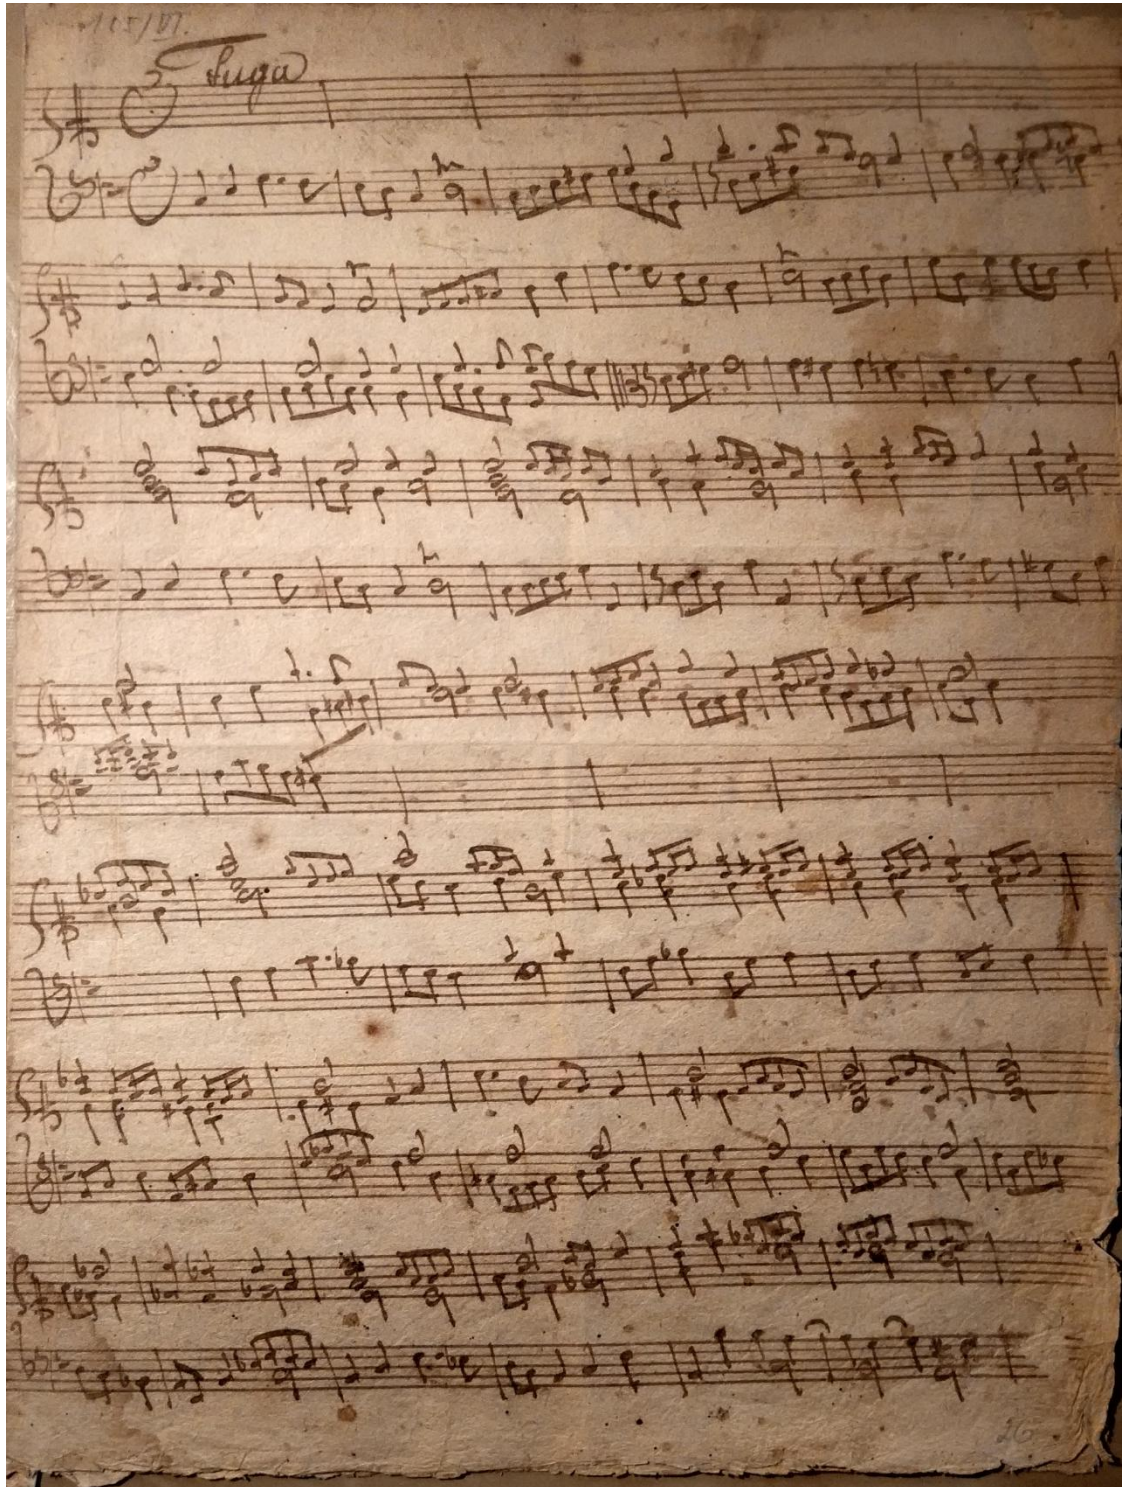 115/VI.
Fuga
26